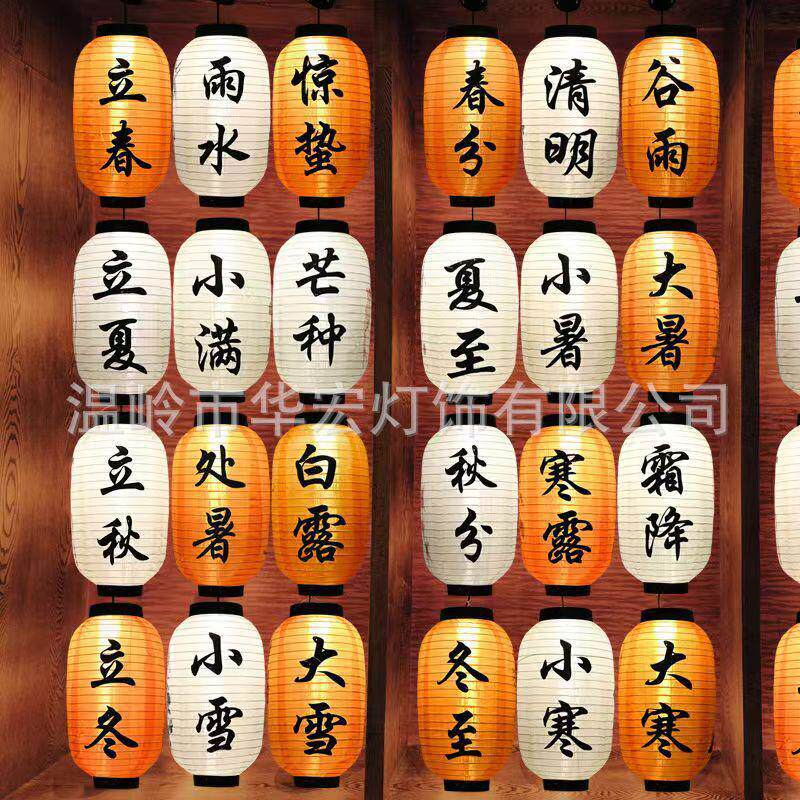 立春
雨水
惊蛰
春分
清明
谷雨
立夏
小满
芒种
夏至
小暑
大暑
温岭市华宏灯饰有限公司
立秋
处暑
白露
秋分
寒露
霜降
立冬
小雪
大雪
冬至
小寒
大寒